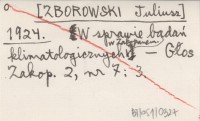 [ZBOROWSKI Juliusz]
1924. [W sprawie badań
(w Zakopanem)
klimatologicznych] – Głos
Zakop. 2, nr 7: 3